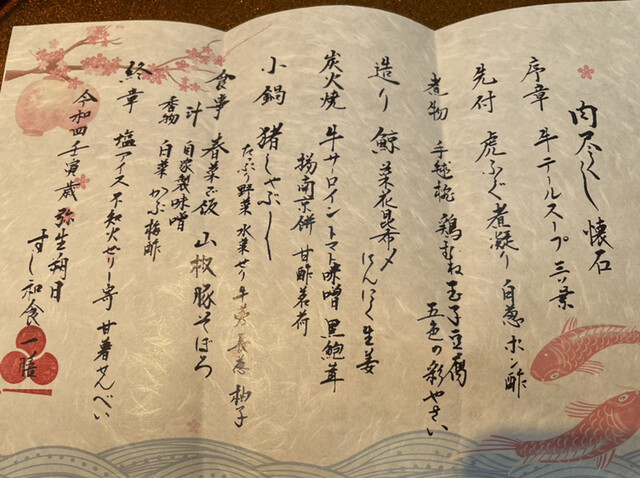 肉尽くし 懐石
序章 牛テールスープ 三つ葉
先付 虎ふぐ煮凝り 白葱 ポン酢
煮物 手毬椀 鶏むね玉子豆腐
五色の彩やさい
造り 鯨 菜花昆布〆
にんにく 生姜
炭火焼 牛サーロイントマト味噌 黒鮑茸
揚南京餅 甘酢茗荷
小鍋 猪しゃぶしゃぶ
たっぷり野菜 水菜 せり 牛蒡 長葱 柚子
食事 春菜ご飯 山椒豚そぼろ
汁 自家製味噌
香物 白菜 かぶ 梅酢
終章 塩アイス 不知火ゼリー寄 甘薯せんべい
令和四壬寅歳 弥生朔日
すし和食 一膳